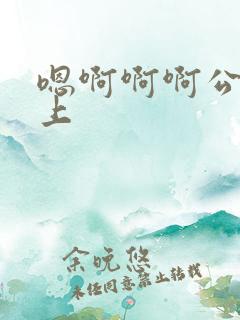 嗯啊啊啊公
上
余晚悠
未经同意禁止转载